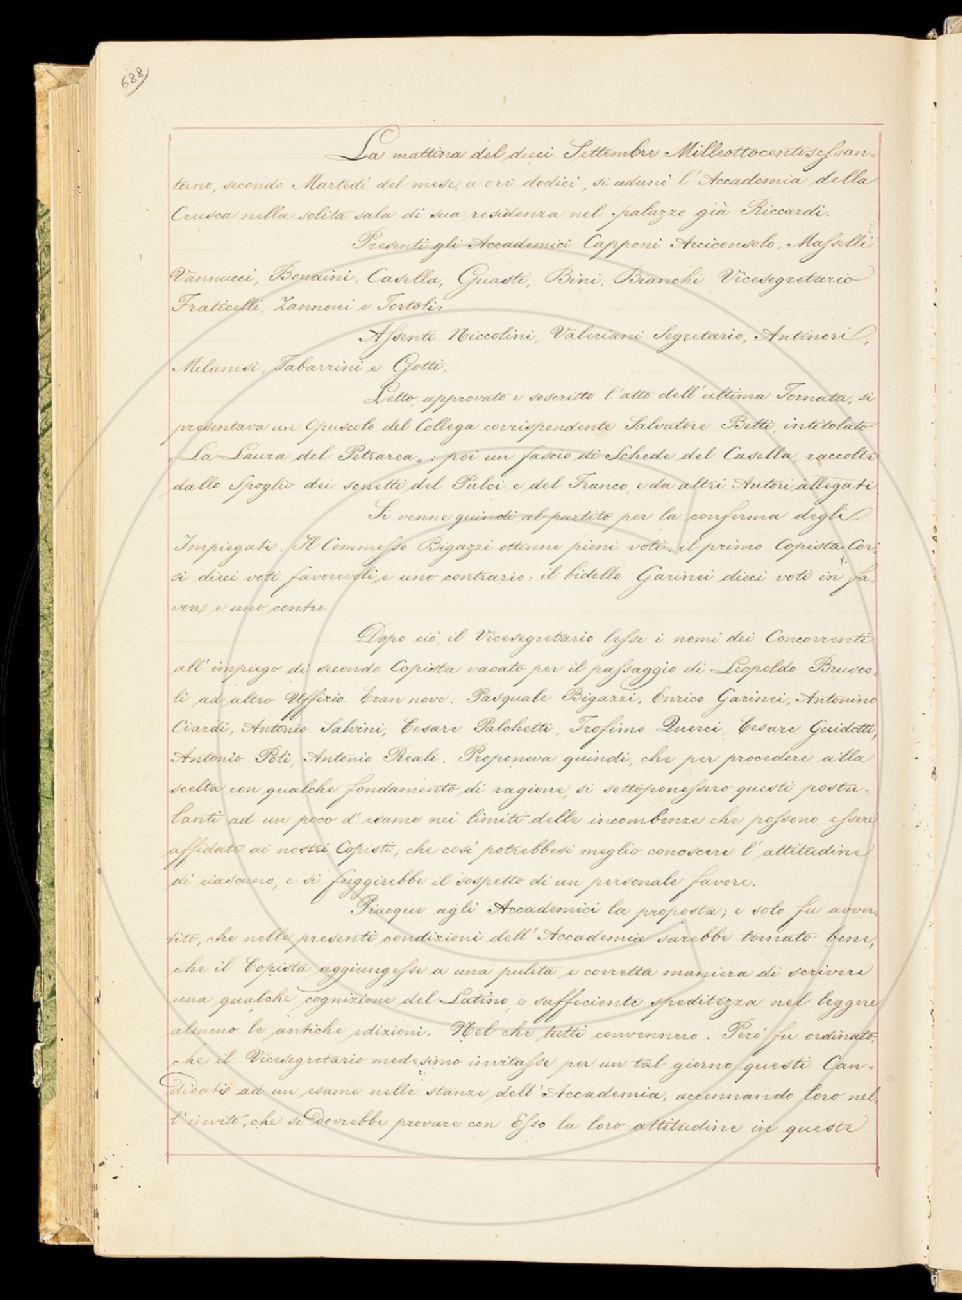 688
La mattina del dieci Settembre Milleottocentosessan-
tuno, secondo Martedì del mese, a ore dodici, si adunò l'Accademia della
Crusca nella solita sala di sua residenza nel palazzo già Riccardi.
Presenti gli Accademici Capponi Arciconsolo, Masselli
Vannucci, Bonaini, Casella, Guasti, Bini, Bianchi Vicesegretario
Fraticelli, Zannoni e Tortoli.
Assenti Niccolini, Valeriani Segretario, Antinori,
Milanesi, Tabarrini e Gotti.
Letto, approvato e soscritto l'atto dell'ultima Tornata, si
presentava un Opuscolo del Collega corrispondente Salvatore Betti, intitolato
"La Laura del Petrarca": poi un fascio di Schede del Casella, raccolte
dallo spoglio dei sonetti del Pulci, e del Franco, e da altri Autori allegati
Si venne quindi al partito per la conferma degli
Impiegati. Il Commesso Bigazzi ottenne pieni voti: il primo Copista Cor-
si dieci voti favorevoli, e uno contrario: il bidello Garinei dieci voti in fa-
vore, e uno contro.
Dopo ciò, il Vicesegretario lesse i nomi dei Concorrenti
all'impiego di secondo Copista vacato per il passaggio di Leopoldo Brusco-
li ad altro Uffizio. Eran nove: Pasquale Bigazzi, Enrico Garinei, Antonino
Ciardi, Antonio Salvini, Cesare Palchetti, Trofimo Querci, Cesare Guidotti,
Antonio Poli, Antonio Reali. Proponeva quindi, che per procedere alla
scelta con qualche fondamento di ragione, si sottoponessero questi postu-
lanti ad un poco d'esame nei limiti delle incombenze che possono essere
affidate ai nostri Copisti, che così potrebbesi meglio conoscere l'attitudine
di ciascuno, e si fuggirebbe il sospetto di un personale favore.
Piacque agli Accademici la proposta; e solo fu avver-
tito, che nelle presenti condizioni dell'Accademia sarebbe tornato bene,
che il Copista aggiungesse a una pulita e corretta maniera di scrivere
una qualche cognizione del Latino, e sufficiente speditezza nel leggere
almeno le antiche edizioni. Nel che tutti convennero. Però fu ordinato,
che il Vicesegretario medesimo invitasse per un tal giorno questi Can-
didati ad un esame nelle stanze dell'Accademia, accennando loro nel-
l'invito, che si dovrebbe provare con Esso la loro attitudine in queste